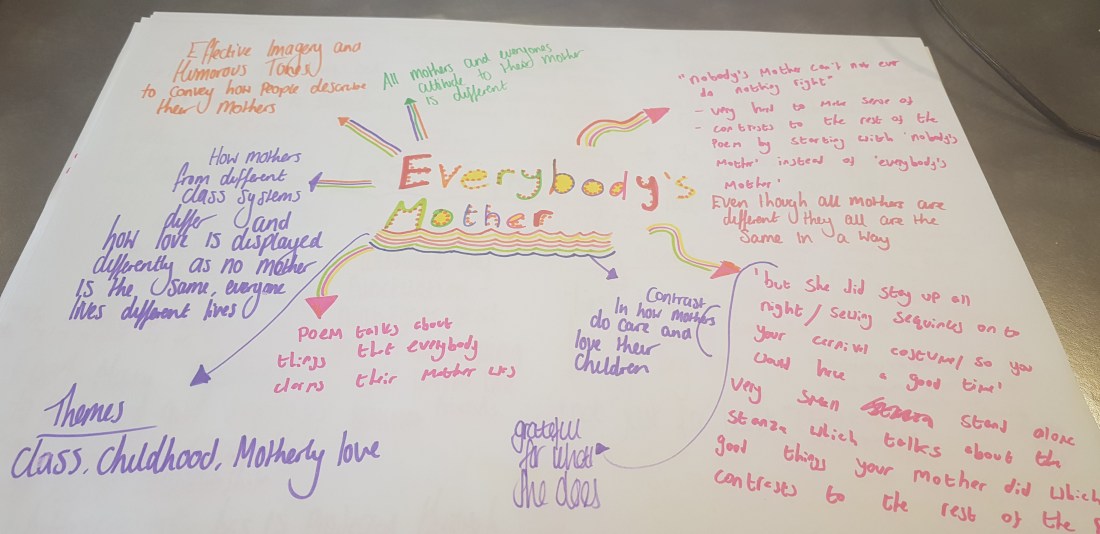 Effective Imagery and
Humorous Tones
to convey how people describe
their Mothers
All mothers and everyones
attitude to their mother
is different
"nobody's Mother can't not ever
do nothing right"
- very hard to make sense of
- contrasts to the rest of the
poem by starting with 'nobody's
Mother' instead of 'everybody's
Mother'
Even though all mothers are
different they all are the
same in a way
How mothers
from different
class systems
differ and
how love is displayed
differently as no mother
is the same, everyone
lives different lives
Everybody's
Mother
Poem talks about
things that everybody
their mother
Contrast
In how mothers
do care and
love their
Children
'but she did stay up all
night/ sewing sequines on to
your carnival costume/ so you
would have a good time'
very small stand alone
stanza which talks about the
good things your mother did which
contrasts to the rest of the
Themes
Class, Childhood, Motherly love
grateful
for what
she does